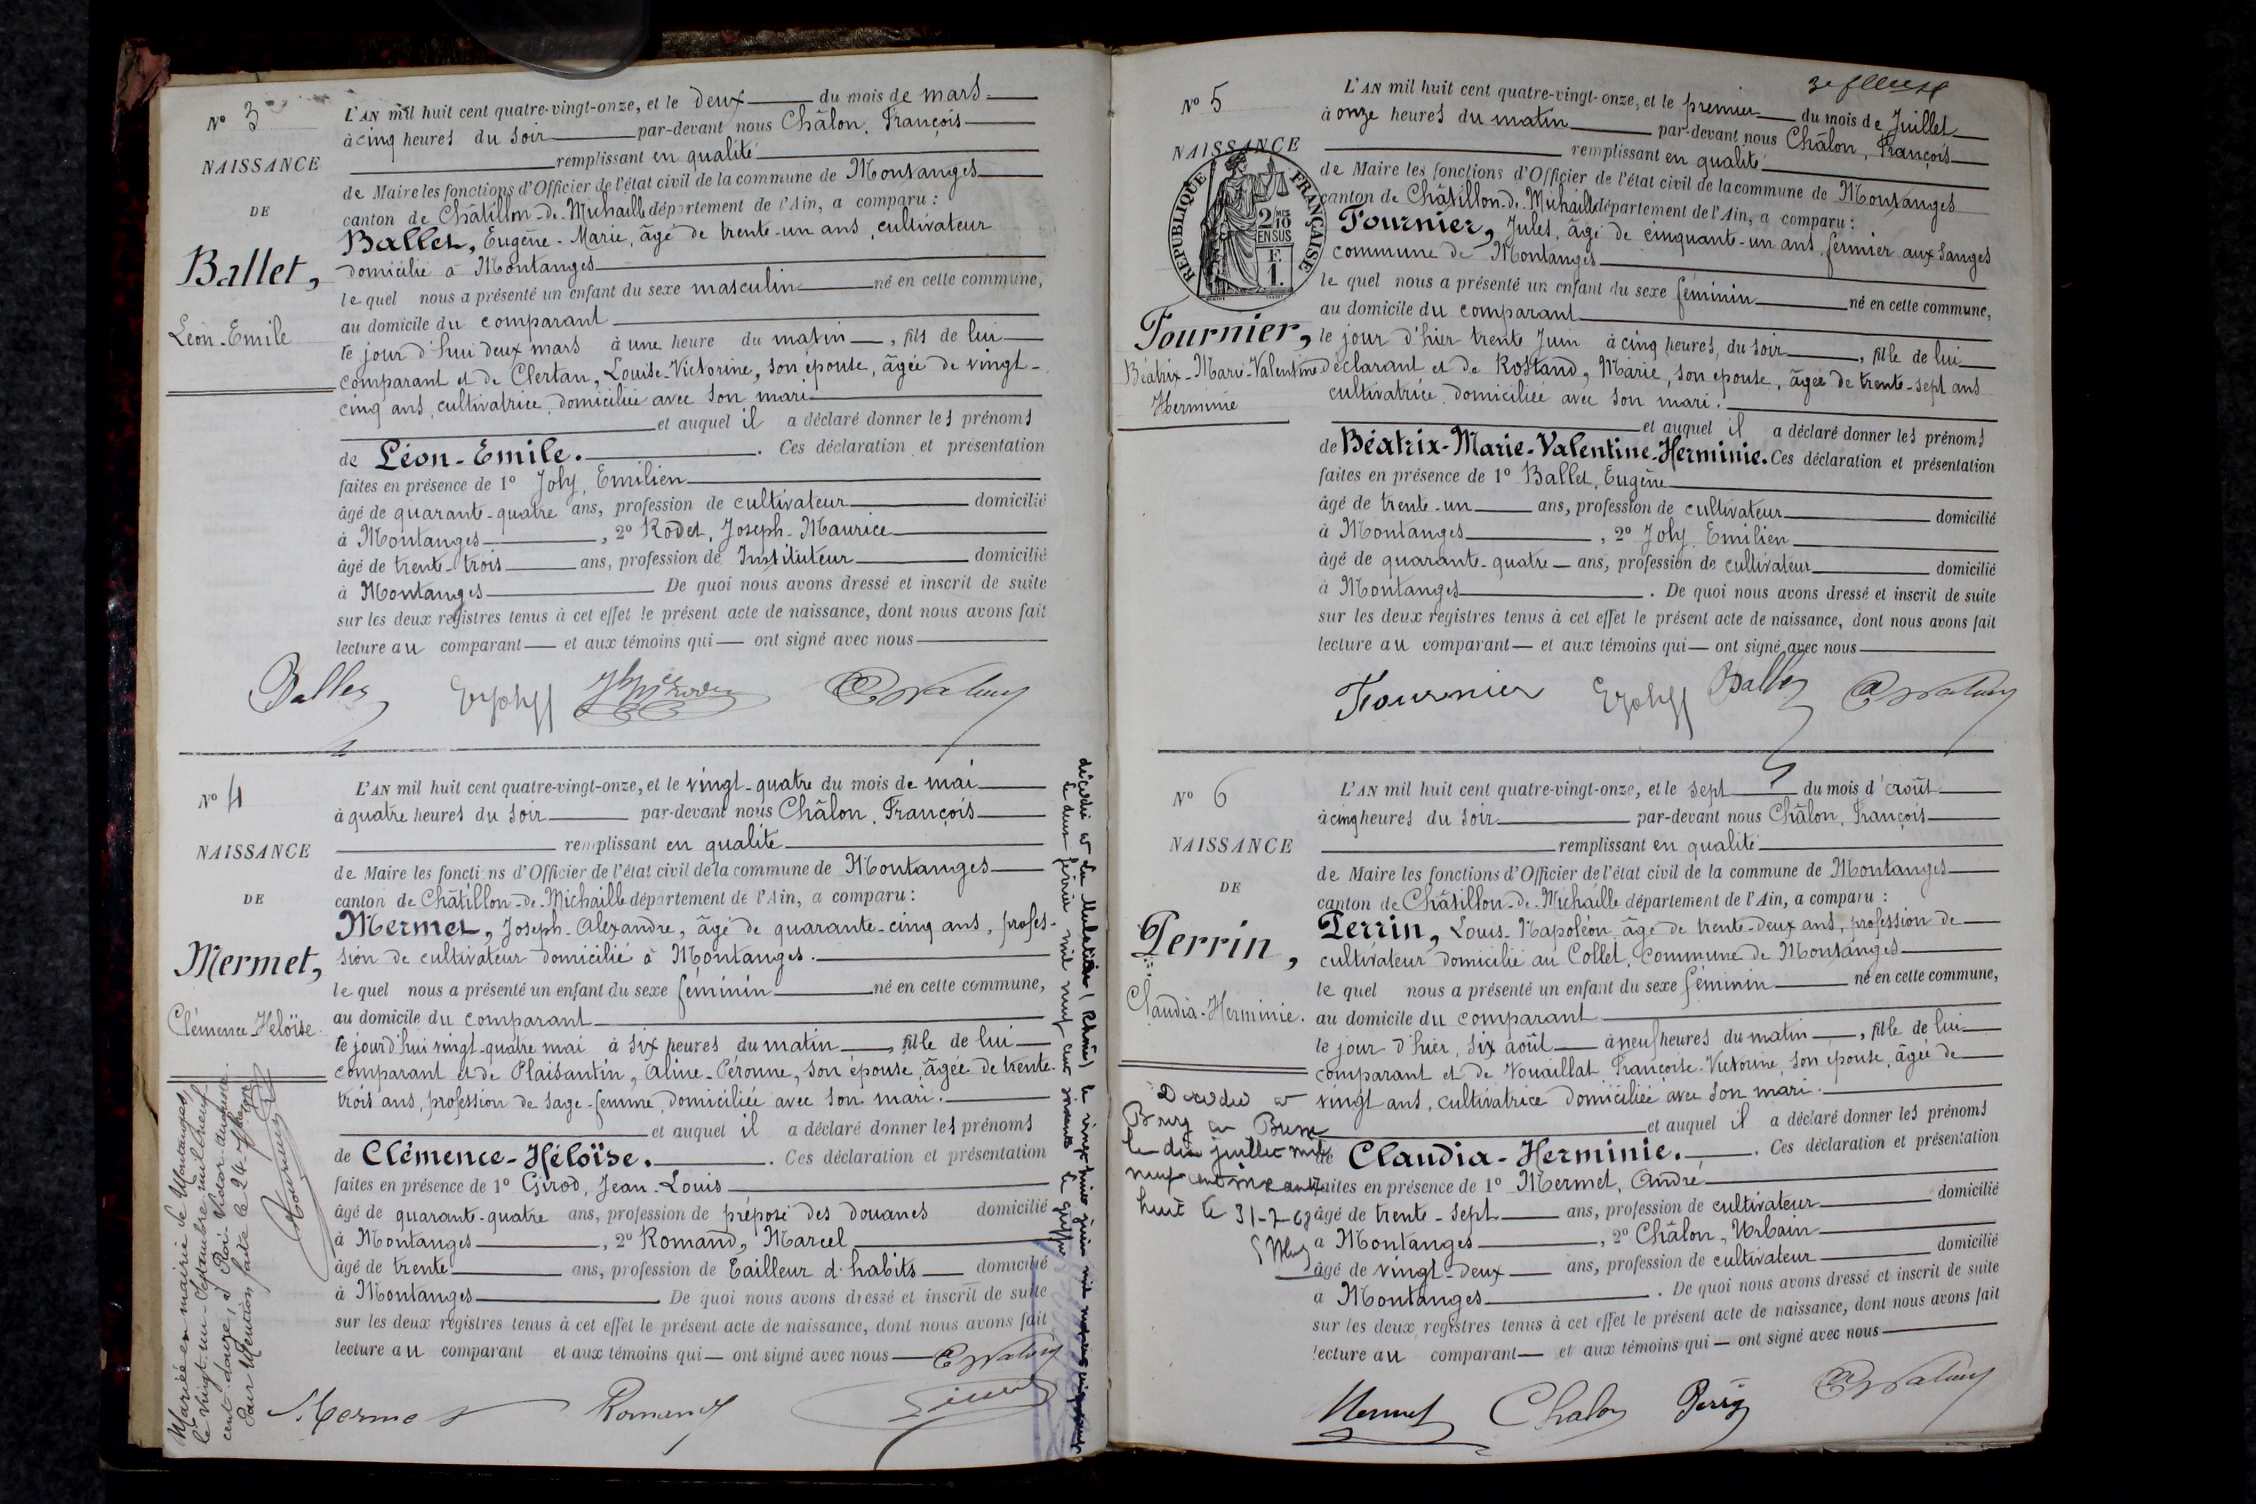 No 3
NAISSANCE
DE
Ballet,
Léon-Emile
L'AN mil huit cent quatre-vingt-onze, et le deux du mois de mars
à cinq heures du soir par-devant nous Châlon, François
remplissant en qualité
de Maire les fonctions d'Officier de l'état civil de la commune de Montanges
canton de Châtillon-de-Michaille département de l'Ain, a comparu :
Ballet, Eugène-Marie, âgé de trente-un ans, cultivateur
domicilié à Montanges
lequel nous a présenté un enfant du sexe masculin né en cette commune,
au domicile du comparant
le jour d'hui deux mars à une heure du matin, fils de lui
comparant et de Clertan, Louise-Victorine, son épouse, âgée de vingt-
cinq ans, cultivatrice, domiciliée avec son mari
et auquel il a déclaré donner les prénoms
de Léon-Emile. Ces déclaration et présentation
faites en présence de 1º Joly, Emilien
âgé de quarante-quatre ans, profession de cultivateur domicilié
à Montanges, 2º Rodet, Joseph-Maurice
âgé de trente-trois ans, profession de Instituteur domicilié
à Montanges De quoi nous avons dressé et inscrit de suite
sur les deux registres tenus à cet effet le présent acte de naissance, dont nous avons fait
lecture au comparant et aux témoins qui ont signé avec nous
Ballet
No 4
NAISSANCE
DE
Mermet,
Clémence Héloïse.
L'AN mil huit cent quatre-vingt-onze, et le vingt-quatre du mois de mai
à quatre heures du soir par-devant nous Châlon, François
remplissant en qualité
de Maire les fonctions d'Officier de l'état civil de la commune de Montanges
canton de Châtillon-de-Michaille département de l'Ain, a comparu :
Mermet, Joseph-Alexandre, âgé de quarante-cinq ans, profes-
sion de cultivateur domicilié à Montanges.
lequel nous a présenté un enfant du sexe féminin né en cette commune,
au domicile du comparant
le jour d'hui vingt-quatre mai à six heures du matin, fille de lui
comparant et de Plaisantin, Aline-Péronne, son épouse, âgée de trente-
trois ans, profession de sage-femme, domiciliée avec son mari.
et auquel il a déclaré donner les prénoms
de Clémence-Héloïse. Ces déclaration et présentation
faites en présence de 1º Girod, Jean-Louis
âgé de quarante-quatre ans, profession de préposé des douanes domicilié
à Montanges, 2º Romand, Marcel
âgé de trente ans, profession de tailleur d'habits domicilié
à Montanges De quoi nous avons dressé et inscrit de suite
sur les deux registres tenus à cet effet le présent acte de naissance, dont nous avons fait
lecture au comparant et aux témoins qui ont signé avec nous
Mermet Romand
Mariée en mairie de Montanges,
le vingt-un Septembre mil neuf
cent douze, à Roi Victor
Pour Mention faite le 24
le deux février mil neuf cent soixante le greffier
No 5
NAISSANCE
RÉPUBLIQUE FRANÇAISE
2/10 EN SUS
F. 1.
Fournier,
Béatrix-Marie-Valentine
Herminie
L'AN mil huit cent quatre-vingt-onze, et le premier du mois de Juillet
à onze heures du matin par-devant nous Châlon, François
remplissant en qualité
de Maire les fonctions d'Officier de l'état civil de la commune de Montanges
canton de Châtillon-de-Michaille département de l'Ain, a comparu :
Fournier, Jules, âgé de cinquante-un ans, fermier aux Sanges
commune de Montanges
lequel nous a présenté un enfant du sexe féminin né en cette commune,
au domicile du comparant
le jour d'hier trente Juin à cinq heures du soir, fille de lui
déclarant et de Rostand, Marie, son épouse, âgée de trente-sept ans
cultivatrice, domiciliée avec son mari.
et auquel il a déclaré donner les prénoms
de Béatrix-Marie-Valentine-Herminie. Ces déclaration et présentation
faites en présence de 1º Ballet, Eugène
âgé de trente-un ans, profession de cultivateur domicilié
à Montanges, 2º Joly, Emilien
âgé de quarante-quatre ans, profession de cultivateur domicilié
à Montanges. De quoi nous avons dressé et inscrit de suite
sur les deux registres tenus à cet effet le présent acte de naissance, dont nous avons fait
lecture au comparant et aux témoins qui ont signé avec nous
Fournier Ballet
No 6
NAISSANCE
DE
Perrin,
Claudia-Herminie.
Décédée à
Bourg en Bresse
le dix juillet mil
neuf cent soixante
huit le 31-7-68
L'AN mil huit cent quatre-vingt-onze, et le sept du mois d'août
à cinq heures du soir par-devant nous Châlon, François
remplissant en qualité
de Maire les fonctions d'Officier de l'état civil de la commune de Montanges
canton de Châtillon-de-Michaille département de l'Ain, a comparu :
Perrin, Louis-Napoléon, âgé de trente-deux ans, profession de
cultivateur domicilié au Collet, commune de Montanges
lequel nous a présenté un enfant du sexe féminin né en cette commune,
au domicile du comparant
le jour d'hier, six août à neuf heures du matin, fille de lui
comparant et de Vouaillat, Françoise-Victorine, son épouse, âgée de
vingt ans, cultivatrice domiciliée avec son mari.
et auquel il a déclaré donner les prénoms
de Claudia-Herminie. Ces déclaration et présentation
faites en présence de 1º Mermet, André
âgé de trente-sept ans, profession de cultivateur domicilié
à Montanges, 2º Châlon, Urbain
âgé de vingt-deux ans, profession de cultivateur domicilié
à Montanges. De quoi nous avons dressé et inscrit de suite
sur les deux registres tenus à cet effet le présent acte de naissance, dont nous avons fait
lecture au comparant et aux témoins qui ont signé avec nous
Mermet Chalon Perrin